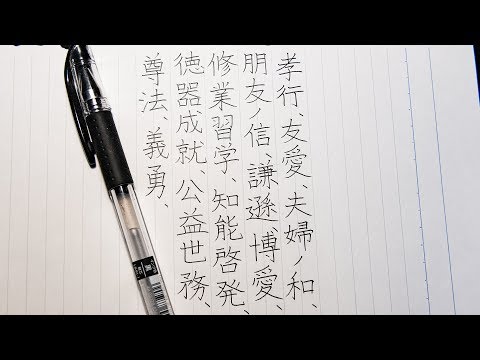 孝行、友愛、夫婦ノ和、
朋友ノ信、謙遜、博愛、
修業習学、知能啓発、
徳器成就、公益世務、
尊法、義勇、